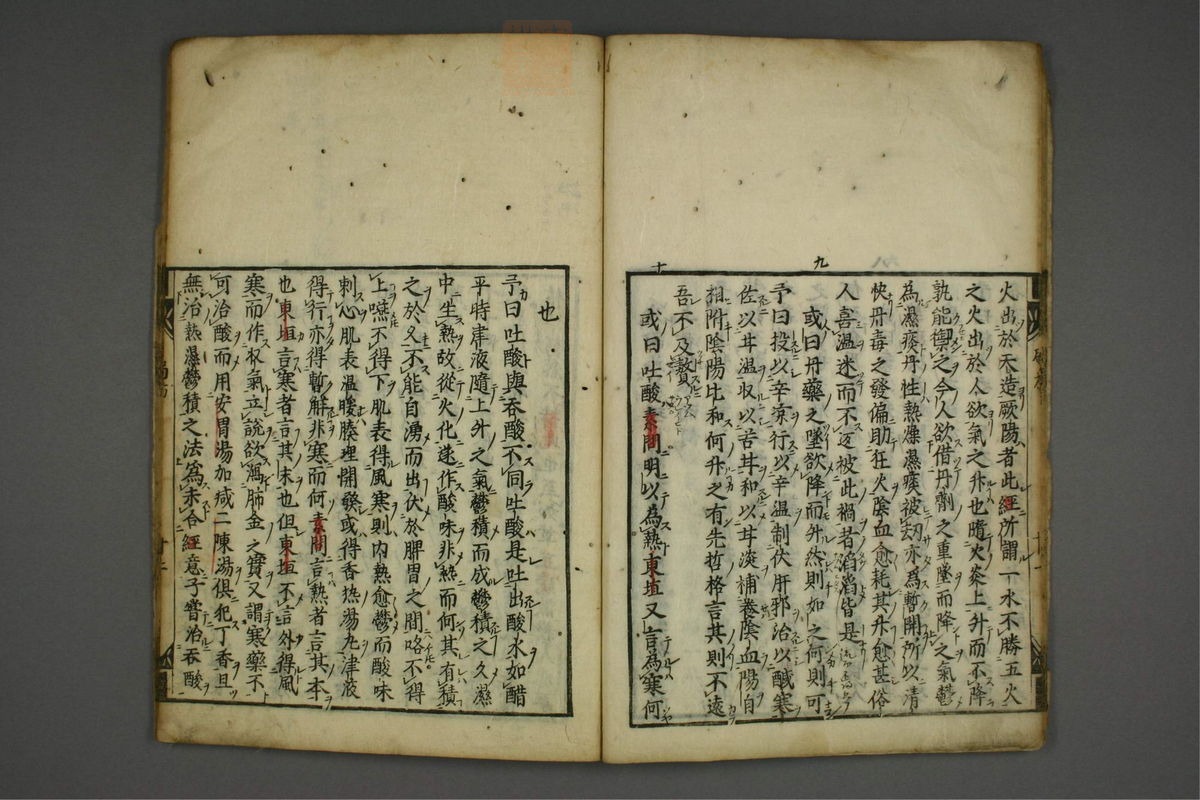 火出於天造厥陽者此經所謂一水不勝五火
之火出於人欲氣之升也隨火炎上升而不降
孰能禦之今人欲借丹劑之重墜而降之氣鬱
為濕痰丹性熱燥濕痰被刼亦為暫開所以清
快丹毒之發偏助狂火陰血愈耗其升愈甚俗
人喜温迷而不返被此禍者滔滔皆是
九
或曰丹藥之墜欲降而升然則如之何則可
予曰投以辛凉行以辛温制伏肝邪治以醎寒
佐以甘温収以苦甘和以甘淡補養陰血陽自
相附陰陽比和何升之有先哲格言其則不遠
吾不及贅
十
或曰吐酸素問明以為熱東垣又言為寒何
也
予曰吐酸與吞酸不同吐酸是吐出酸水如醋
平時津液隨上升之氣鬱積而成鬱積之久濕
中生熱故從火化遂作酸味非熱而何其有積
之於久不能自湧而出伏於脾胃之間咯不得
上嚥不得下肌表得風寒則内熱愈鬱而酸味
刺心肌表温暖腠理開發或得香热湯丸津液
得行亦得暫解非寒而何素問言熱者言其本
也東垣言寒者言其末也但東垣不言外得風
寒而作収氣立說欲瀉肺金之實又謂寒藥不
可治酸而用安胃湯加减二陳湯俱犯丁香且
無治熱濕鬱積之法爲未合經意予嘗治吞酸